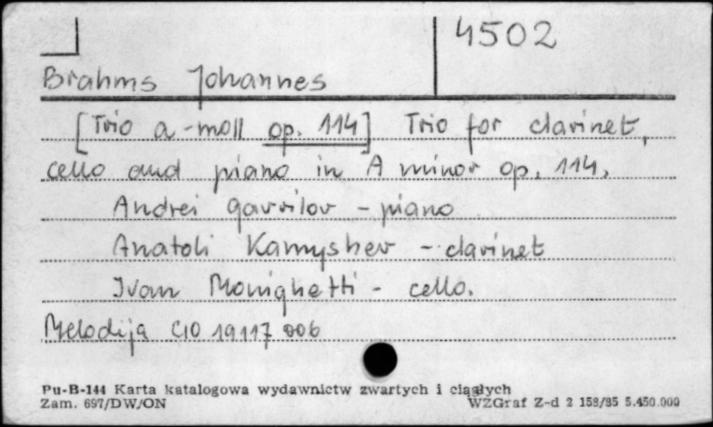 4502
Brahms Johannes
[Trio a-moll op. 114] Trio for clarinet,
cello and piano in A minor op. 114.
Andrei Gavrilov - piano
Anatoli Kamyshev - clarinet
Ivan Monighetti - cello.
Melodija C10 19117 006
Pu-B-144 Karta katalogowa wydawnictw zwartych i ciągłych
Zam. 697/DW/ON WZGraf Z-d 2 158/85 5.450.000